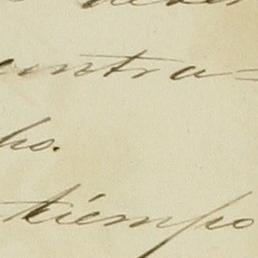 contra=
ho.
tiempo